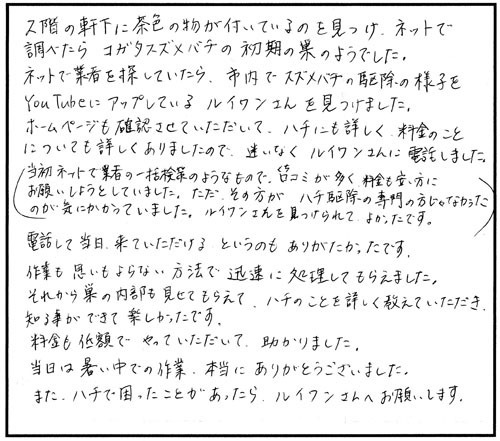 2階の軒下に茶色の物が付いているのを見つけ、ネットで
調べたら コガタスズメバチの 初期の巣のようでした。
ネットで業者を探していたら、市内で スズメバチの駆除の様子を
YouTubeに アップしている ルイワンさん を見つけました。
ホームページも 確認させていただいて、ハチにも詳しく、料金のこと
についても 詳しくありましたので、迷いなく ルイワンさんに 電話しました。
(当初ネットで業者の一括検索のようなもので、口コミが多く 料金も安い方に
お願いしようとしていました。ただ、その方が ハチ駆除の専門の方じゃなかった
のが気にかかっていました。ルイワンさんを見つけられて よかったです。)
電話して 当日、来ていただける というのも ありがたかったです。
作業も 思いもよらない 方法で 迅速に 処理してもらえました。
それから 巣の内部も 見せてもらえて、ハチのことを 詳しく教えていただき、
知る事ができて 楽しかったです。
料金も 低額で やっていただいて、助かりました。
当日は 暑い中での作業、本当に ありがとうございました。
また、ハチで困ったことが あったら、ルイワンさんへお願いします。